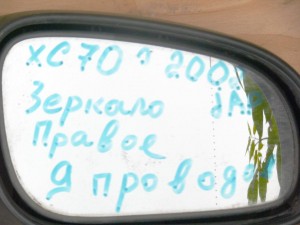 XC70 200
Зеркало JAP
Правое
9 проводов